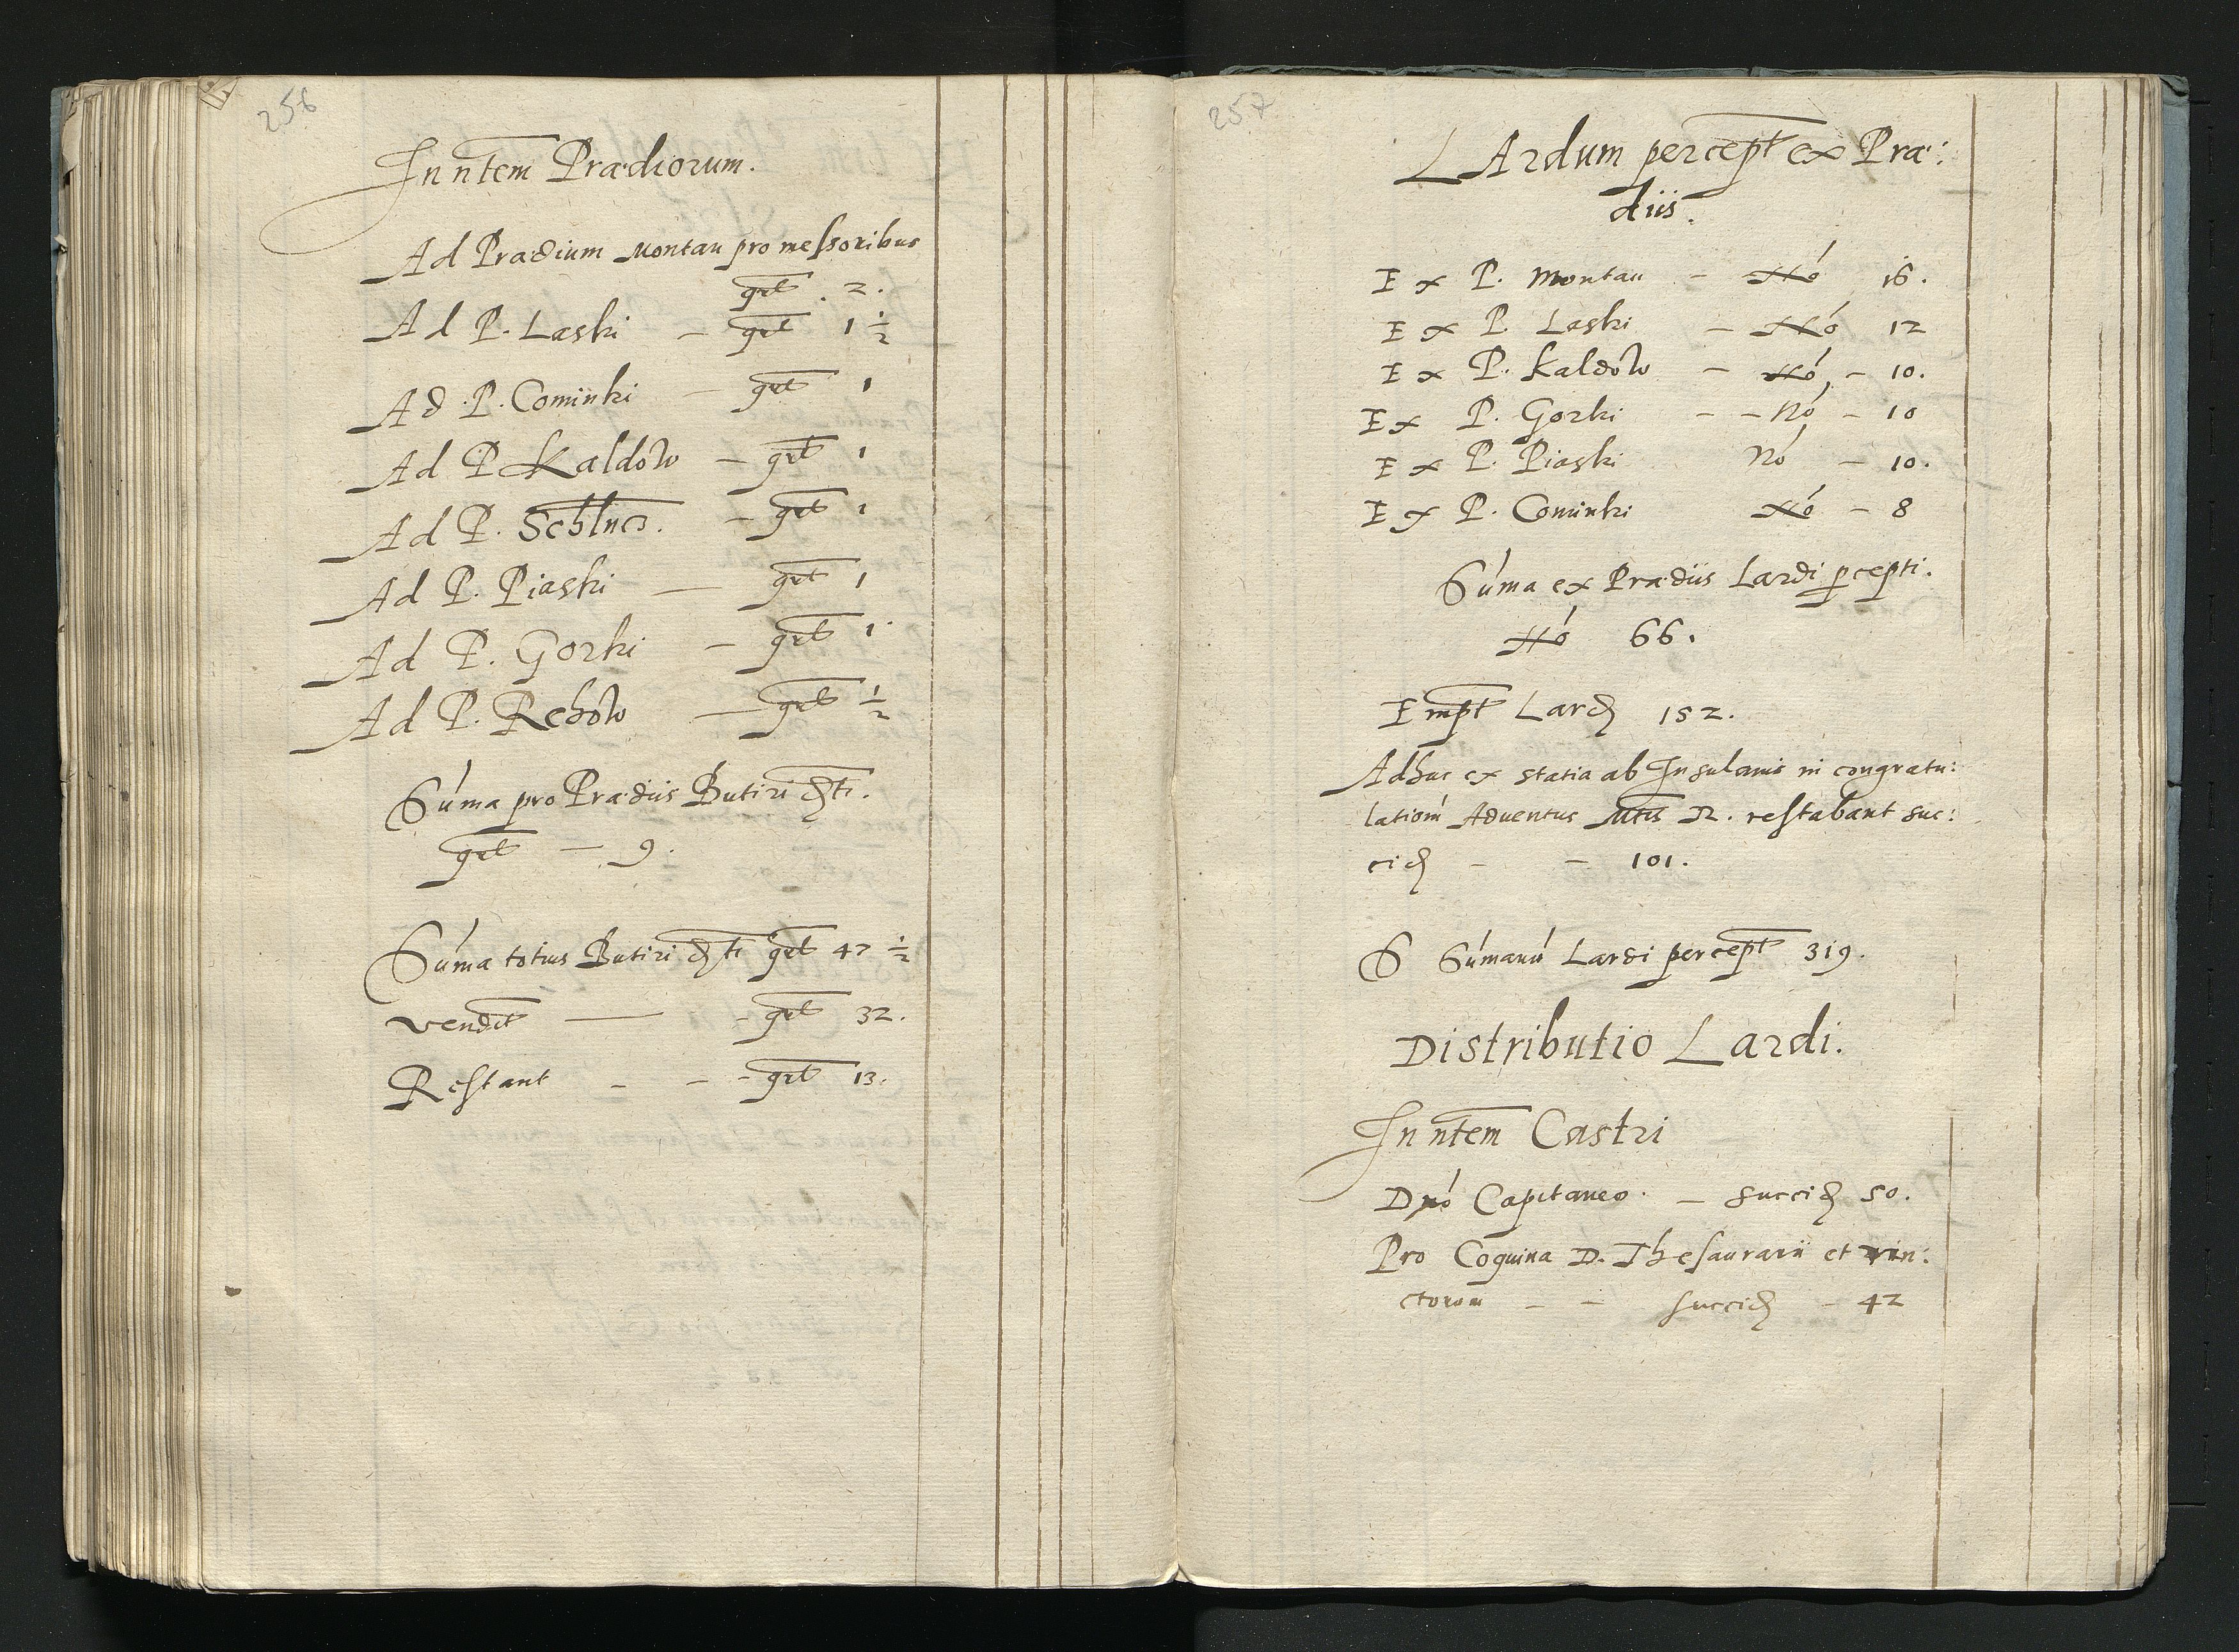 256
In ntem Prædiorum.
Ad Prædium Montau pro messoribus
grt . 2.
Ad P. Laski – grt 1 ½
Ad P. Cominki – grt 1
Ad P Kaldow – grt 1
Ad P. – grt 1
Ad P. Piaski — grt 1
Ad P. Gorki – grt 1
Ad P. Rehow — grt ½
Suma pro Prædiis Butiri
grt — 9.
Suma totius Butiri grt 47 ½
vendit —— - grt 32.
Restant - - - grt 13.
257
LArdum percept ex Præ:
diis.
Ex P. Montau – No 16.
Ex P. Laski – No 12
Ex P. Kaldow – No, – 10.
Ex P. Gorki - – No – 10
Ex P. Piaski No – 10.
Ex P. Cominki No – 8
Suma ex Prædiis Lardi pcepti.
No 66.
Empt Lard 152.
Adhuc ex statia ab Insulanis in congratu:
lationi Adventus Mtis R. restabant suc:
cid - – 101.
S Sumaru Lardi percept 319.
Distributio Lardi.
In ntem Castri
Dno Capitaneo. – Succid 50.
Pro Coquina D. Thesaurarii et vin:
ctorum – – succid – 42